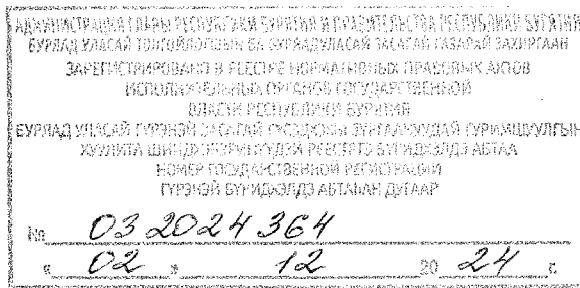 АДМИНИСТРАЦИЯ ГЛАВЫ РЕСПУБЛИКИ БУРЯТИЯ И ПРАВИТЕЛЬСТВА РЕСПУБЛИКИ БУРЯТИЯ
БУРЯАД УЛАСАЙ ТОЛГОЙЛОГШЫН БА БУРЯАД УЛАСАЙ ЗАСАГАЙ ГАЗАРАЙ ЗАХИРГААН
ЗАРЕГИСТРИРОВАНО В РЕЕСТРЕ НОРМАТИВНЫХ ПРАВОВЫХ АКТОВ
ИСПОЛНИТЕЛЬНЫХ ОРГАНОВ ГОСУДАРСТВЕННОЙ
ВЛАСТИ РЕСПУБЛИКИ БУРЯТИЯ
БУРЯАД УЛАСАЙ ГҮРЭНЭЙ ЗАСАГАЙ
ХУУЛИТА РЕЕСТРТЭ БҮРИДХЭЛДЭ АБТАА
НОМЕР ГОСУДАРСТВЕННОЙ РЕГИСТРАЦИИ
ГҮРЭНЭЙ БҮРИДХЭЛДЭ АБТАҺАН ДУГААР
№ 03 2024 364
« 02 » 12 20 24 г.